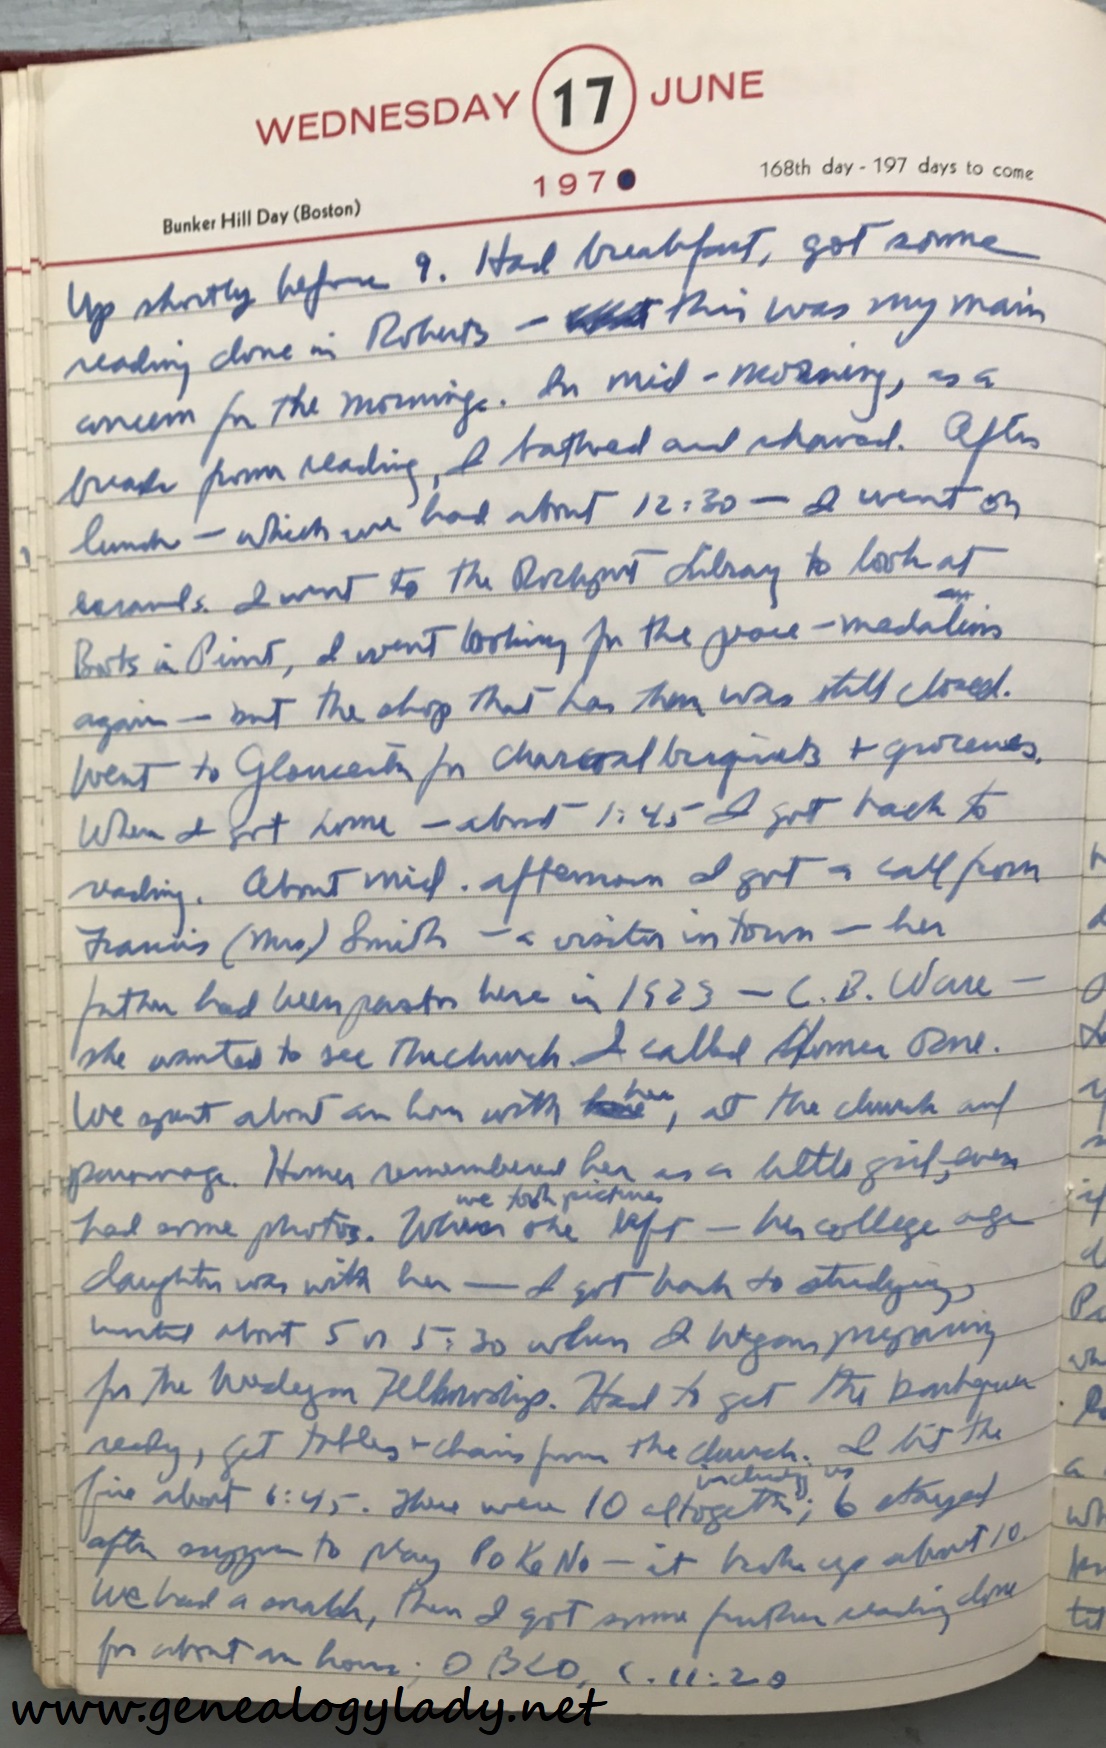 WEDNESDAY 17 JUNE
1970
168th day - 197 days to come
Bunker Hill Day (Boston)
Up shortly before 9. Had breakfast, got some
reading done in Roberts - this was my main
concern for the morning. In mid-morning, as a
break from reading, I bathed and shaved. After
lunch - which we had about 12:30 - I went on
errands. I went to the Rockport Library to look at
Books in Print, I went looking for the peace-medallions
again - but the shop that has them was still closed.
Went to Gloucester for charcoal briquets + groceries.
When I got home - about 1:45 I got back to
reading. About mid-afternoon I got a call from
Francis (Mrs) Smith - a visitor in town - her
father had been pastor here in 1923 - C. B. Ware -
she wanted to see the church. I called Homer Orne.
We spent about an hour with her, at the church and
parsonage. Homer remembered her as a little girl, even
had some photos. we took pictures When she left - her college age
daughter was with her - I got back to studying,
until about 5 or 5:30 when I began preparing
for the Wesleyan Fellowship. Had to get the barbeque
ready, get tables + chairs from the church. I lit the
fire about 6:45. There were 10 altogether, including us; 6 stayed
after supper to play PoKeNo - it broke up about 10.
We had a snack, then I got some further reading done
for about an hour; OBLO, c. 11:20
www.genealogylady.net